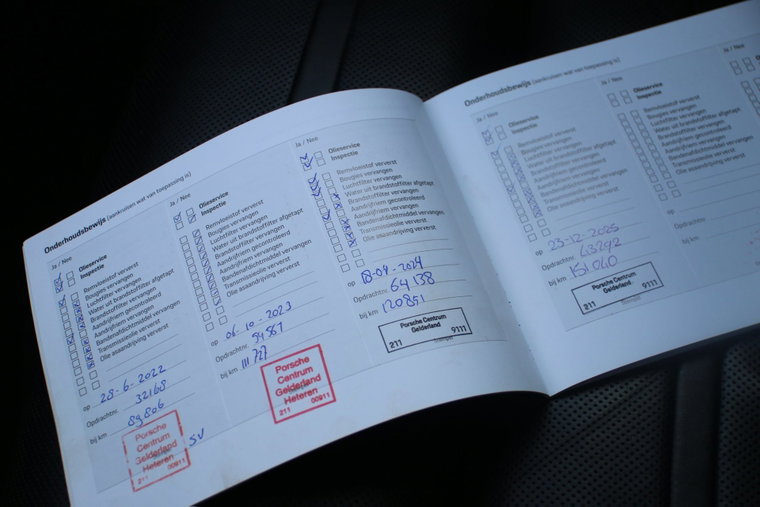 Onderhoudsbewijs (aankruisen wat van toepassing is)
Ja / Nee
Olieservice
Inspectie
Remvloeistof ververst
Bougies vervangen
Luchtfilter vervangen
Water uit brandstoffilter afgetapt
Brandstoffilter vervangen
Aandrijfriem gecontroleerd
Aandrijfriem vervangen
Bandenafdichtmiddel vervangen
Transmissieolie ververst
Olie asaandrijving ververst
op 28-6-2022
Opdrachtnr. 32168
bij km 89806
Porsche
Centrum
Gelderland
Heteren
211 00911
SV
Ja / Nee
Olieservice
Inspectie
Remvloeistof ververst
Bougies vervangen
Luchtfilter vervangen
Water uit brandstoffilter afgetapt
Brandstoffilter vervangen
Aandrijfriem gecontroleerd
Aandrijfriem vervangen
Bandenafdichtmiddel vervangen
Transmissieolie ververst
Olie asaandrijving ververst
op 06-10-2023
Opdrachtnr.
bij km 111727
Porsche
Centrum
Gelderland
Heteren
211 00911
Ja / Nee
Olieservice
Inspectie
Remvloeistof ververst
Bougies vervangen
Luchtfilter vervangen
Water uit brandstoffilter afgetapt
Brandstoffilter vervangen
Aandrijfriem gecontroleerd
Aandrijfriem vervangen
Bandenafdichtmiddel vervangen
Transmissieolie ververst
Olie asaandrijving ververst
op
Opdrachtnr. 64138
bij km 120891
Porsche Centrum
Gelderland
211 9111
Onderhoudsbewijs (aankruisen wat van toepassing is)
Ja / Nee
Olieservice
Inspectie
Remvloeistof ververst
Bougies vervangen
Luchtfilter vervangen
Water uit brandstoffilter afgetapt
Brandstoffilter vervangen
Aandrijfriem gecontroleerd
Aandrijfriem vervangen
Bandenafdichtmiddel vervangen
Transmissieolie ververst
Olie asaandrijving ververst
op 23-12-2025
Opdrachtnr.
bij km 151040
Porsche Centrum
Gelderland
211 9111
Ja / Nee
Olieservice
Inspectie
Remvloeistof ververst
Bougies vervangen
Luchtfilter vervangen
Water uit brandstoffilter afgetapt
Brandstoffilter vervangen
Aandrijfriem gecontroleerd
Aandrijfriem vervangen
Bandenafdichtmiddel vervangen
Transmissieolie ververst
Olie asaandrijving ververst
op
Opdrachtnr.
bij km
Stempel
Ja / Nee